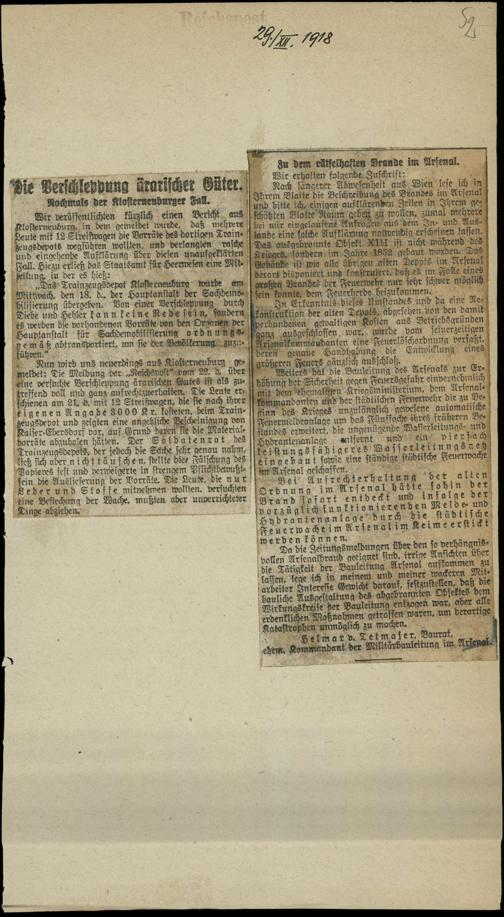 Reichspost
29./XII. 1918
52
Die Verschleppung ärarischer Güter.
Nochmals der Klosterneuburger Fall.
Wir veröffentlichten kürzlich einen Bericht aus
Klosterneuburg, in dem gemeldet wurde, daß mehrere
Leute mit 12 Streifwagen die Vorräte des dortigen Train-
zeugsdepots wegführen wollten, und verlangten rasche
und eingehende Aufklärung über diesen unaufgeklärten
Fall. Hiezu erließ das Staatsamt für Heerwesen eine Mit-
teilung, in der es hieß:
„Das Trainzeugsdepot Klosterneuburg wurde am
Mittwoch, den 18. d., der Hauptanstalt der Sachdemo-
bilisierung übergeben. Von einer Verschleppung durch
Diebe und Hehler kann keine Rede sein, sondern
es werden die vorhandenen Vorräte von den Organen der
Hauptanstalt für Sachdemobilisierung ordnungs-
gemäß abtransportiert, um sie der Bevölkerung zuzu-
führen.“
Nun wird uns neuerdings aus Klosterneuburg ge-
meldet: Die Meldung der „Reichspost“ vom 22. d. über
eine versuchte Verschleppung ärarischen Gutes ist als zu-
treffend voll und ganz aufrechtzuerhalten. Die Leute er-
schienen am 21. d. mit 12 Streifwagen, die sie nach ihrer
eigenen Angabe 3000 Kr. kosteten, beim Train-
zeugsdepot und zeigten eine angebliche Bescheinigung von
Kaiser-Ebersdorf vor, auf Grund deren sie die Material-
vorräte abzuholen hätten. Der Soldatenrat des
Trainzeugsdepots, der jedoch die Sache sehr genau nahm,
ließ sich aber nicht täuschen, stellte die Fälschung des
Papieres fest und verweigerte in strengem Pflichtbewußt-
sein die Auslieferung der Vorräte. Die Leute, die nur
Leder und Stoffe mitnehmen wollten, versuchten
eine Bestechung der Wache, mußten aber unverrichteter
Dinge abziehen.
Zu dem rätselhaften Brande im Arsenal.
Wir erhalten folgende Zuschrift:
Nach längerer Abwesenheit aus Wien lese ich in
Ihrem Blatte die Beschreibung des Brandes im Arsenal
und bitte ich, einigen aufklärenden Zeilen in Ihrem ge-
schätzten Blatte Raum geben zu wollen, zumal mehrere
bei mir eingelaufene Anfragen aus dem In- und Aus-
lande eine solche Aufklärung notwendig erscheinen lassen.
Das ausgebrannte Objekt XIII ist nicht während des
Krieges, sondern im Jahre 1852 gebaut worden. Das
Gebäude ist wie alle übrigen alten Depots im Arsenal
derart disponiert und konstruiert, daß es im Falle eines
großen Brandes der Feuerwehr nur sehr schwer möglich
sein konnte, dem Feuerherde beizukommen.
In Erkenntnis dieses Umstandes und da eine Re-
konstruktion der alten Depots, abgesehen von den damit
verbundenen gewaltigen Kosten aus Betriebsgründen
ganz ausgeschlossen war, wurde vom seinerzeitigen
Arsenalkommandanten eine Feuerlöschordnung verfaßt,
deren genaue Handhabung die Entwicklung eines
größeren Feuers gänzlich ausschloß.
Weiters hat die Bauleitung des Arsenals zur Er-
höhung der Sicherheit gegen Feuersgefahr einvernehmlich
mit dem ehemaligen Kriegsministerium, dem Arsenal-
kommandanten und der städischen Feuerwehr die zu Be-
ginn des Krieges unzulänglich gewesene automatische
Feuermeldeanlage um das Fünffache ihres früheren Be-
standes erweitert, die ungenügende Wasserleitungs- und
Hydrantenanlage entfernt und ein vierfach
leistungsfähigeres Wasserleitungsnetz
eingebaut sowie eine ständige städtische Feuerwache
im Arsenal geschaffen.
Bei Aufrechterhaltung der alten
Ordnung im Arsenal hätte sohin der
Brand sofort entdeckt und infolge der
vorzüglich funktionierenden Melde- und
Hydrantenanlage durch die städtische
Feuerwache im Arsenal im Keime erstickt
werden können.
Da die Zeitungsmeldungen über den so verhängnis-
vollen Arsenalbrand geeignet sind, irrige Ansichten über
die Tätigkeit der Bauleitung Arsenal aufkommen zu
lassen, lege ich in meinem und meiner wackeren Mit-
arbeiter Interesse Gewicht darauf, festzustellen, daß die
bauliche Ausgestaltung des abgebrannten Objektes dem
Wirkungskreise der Bauleitung entzogen war, aber alle
erdenklichen Maßnahmen getroffen waren, um derartige
Katastrophen unmöglich zu machen.
Helmar v. Tetmajer, Baurat,
ehem. Kommandant der Militärbauleitung im Arsenal.